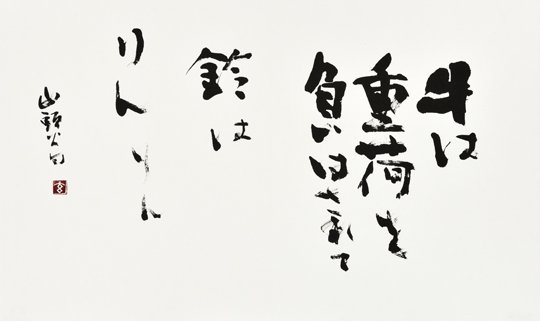 牛は
重荷を
負はされて
鈴は
りんりん
山頭火句
玄